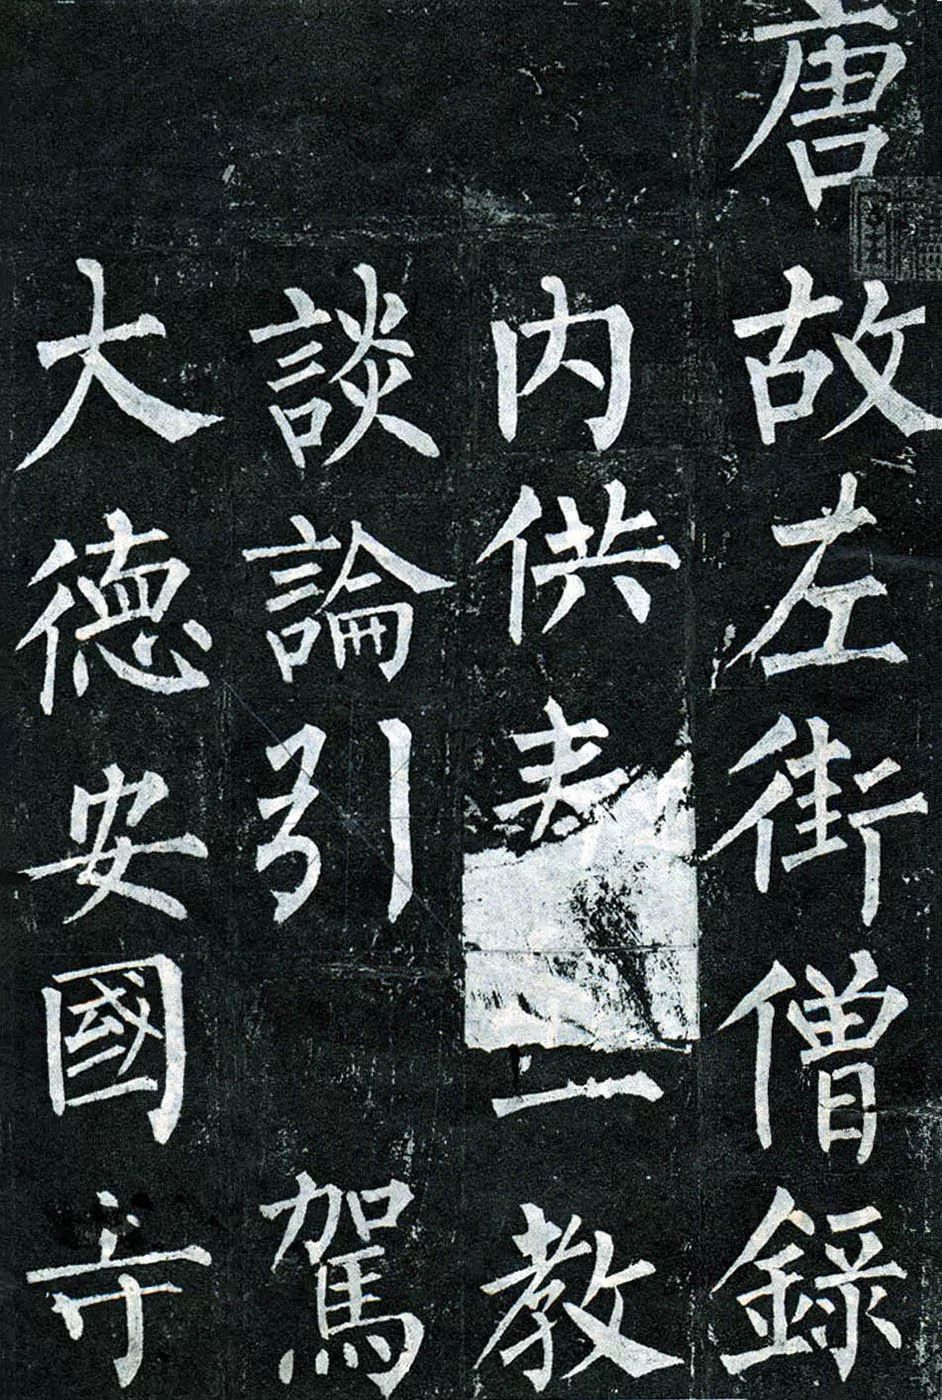 唐故左街僧錄
内供奉教
談論引 駕
大德安國寺